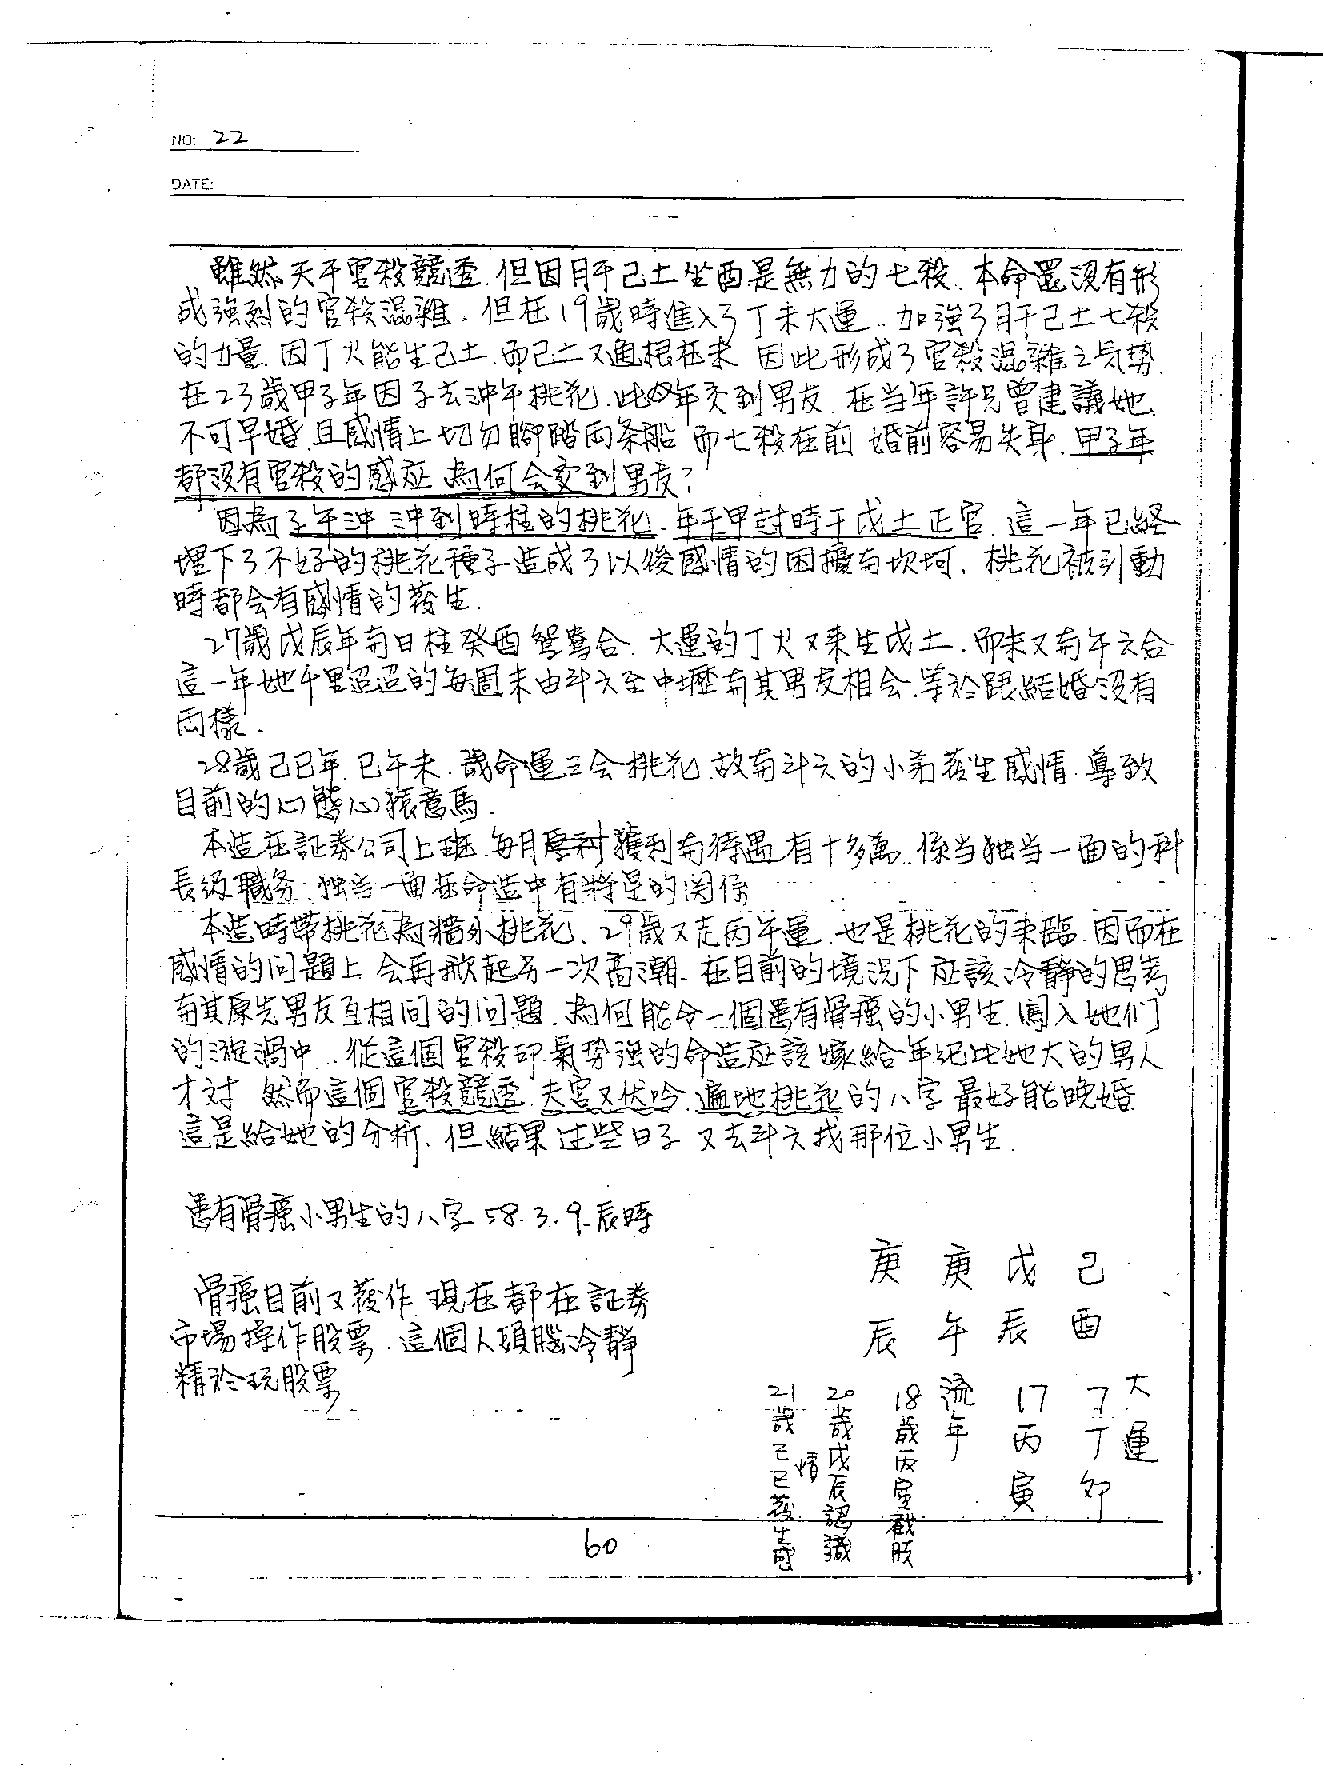 NO: 22
DATE:
雖然天干官殺競透.但因月干己土坐酉是無力的七殺.本命還沒有形
成強烈的官殺混雜.但在19歲時進入了丁未大運.加強了月干己土七殺
的力量.因丁火能生己土.而己土又通根在未 因此形成了官殺混雜之氣勢.
在23歲甲子年因子去沖午桃花.此年交到男友.在當年許兄曾建議她.
不可早婚.且感情上切勿腳踏兩条船 而七殺在前 婚前容易失身.甲子年
都沒有官殺的感应 為何会交到男友?
因為子午沖 沖到時柱的桃花.年干甲討時干戊土正官.這一年已經
埋下了不好的桃花種子.造成了以後感情的困擾与坎坷.桃花被引動
時都会有感情的發生.
27歲戊辰年与日柱癸酉鴛鴦合.大運的丁火又來生戊土.而未又与午六合
這一年她千里迢迢的每週末由斗六至中壢与其男友相会.等於跟結婚沒有
兩樣.
28歲己巳年.巳午未.歲命運三会桃花.故与斗六的小弟發生感情.導致
目前的心態心猿意馬.
本造在証券公司上班.每月獲利与待遇有十多萬.係当独当一面的科
長級職务.独当一面在命造中有將星的関係
本造時帶桃花為牆外桃花.29歲又走丙午運.也是桃花的來臨.因而在
感情的问題上 会再掀起另一次高潮.在目前的境況下应該冷靜的思考
与其原先男友互相间的问題.為何能令一個患有骨癌的小男生.闖入她们
的漩渦中.從這個官殺印氣势強的命造应該嫁給年紀比她大的男人
才对 然而這個官殺競透.夫宮又伏吟.遍地桃花的八字 最好能晚婚
這是給她的分析.但結果过些日子 又去斗六找那位小男生.
患有骨癌小男生的八字 58.3.9.辰時
骨癌目前又發作 現在都在証券
市場操作股票.這個人頭腦冷靜
精於玩股票
己酉
戊辰
庚午
庚辰
大運
7丁卯
17丙寅
流年
18歲丙寅截肢
20歲戊辰認識
21歲己巳發生感情
60